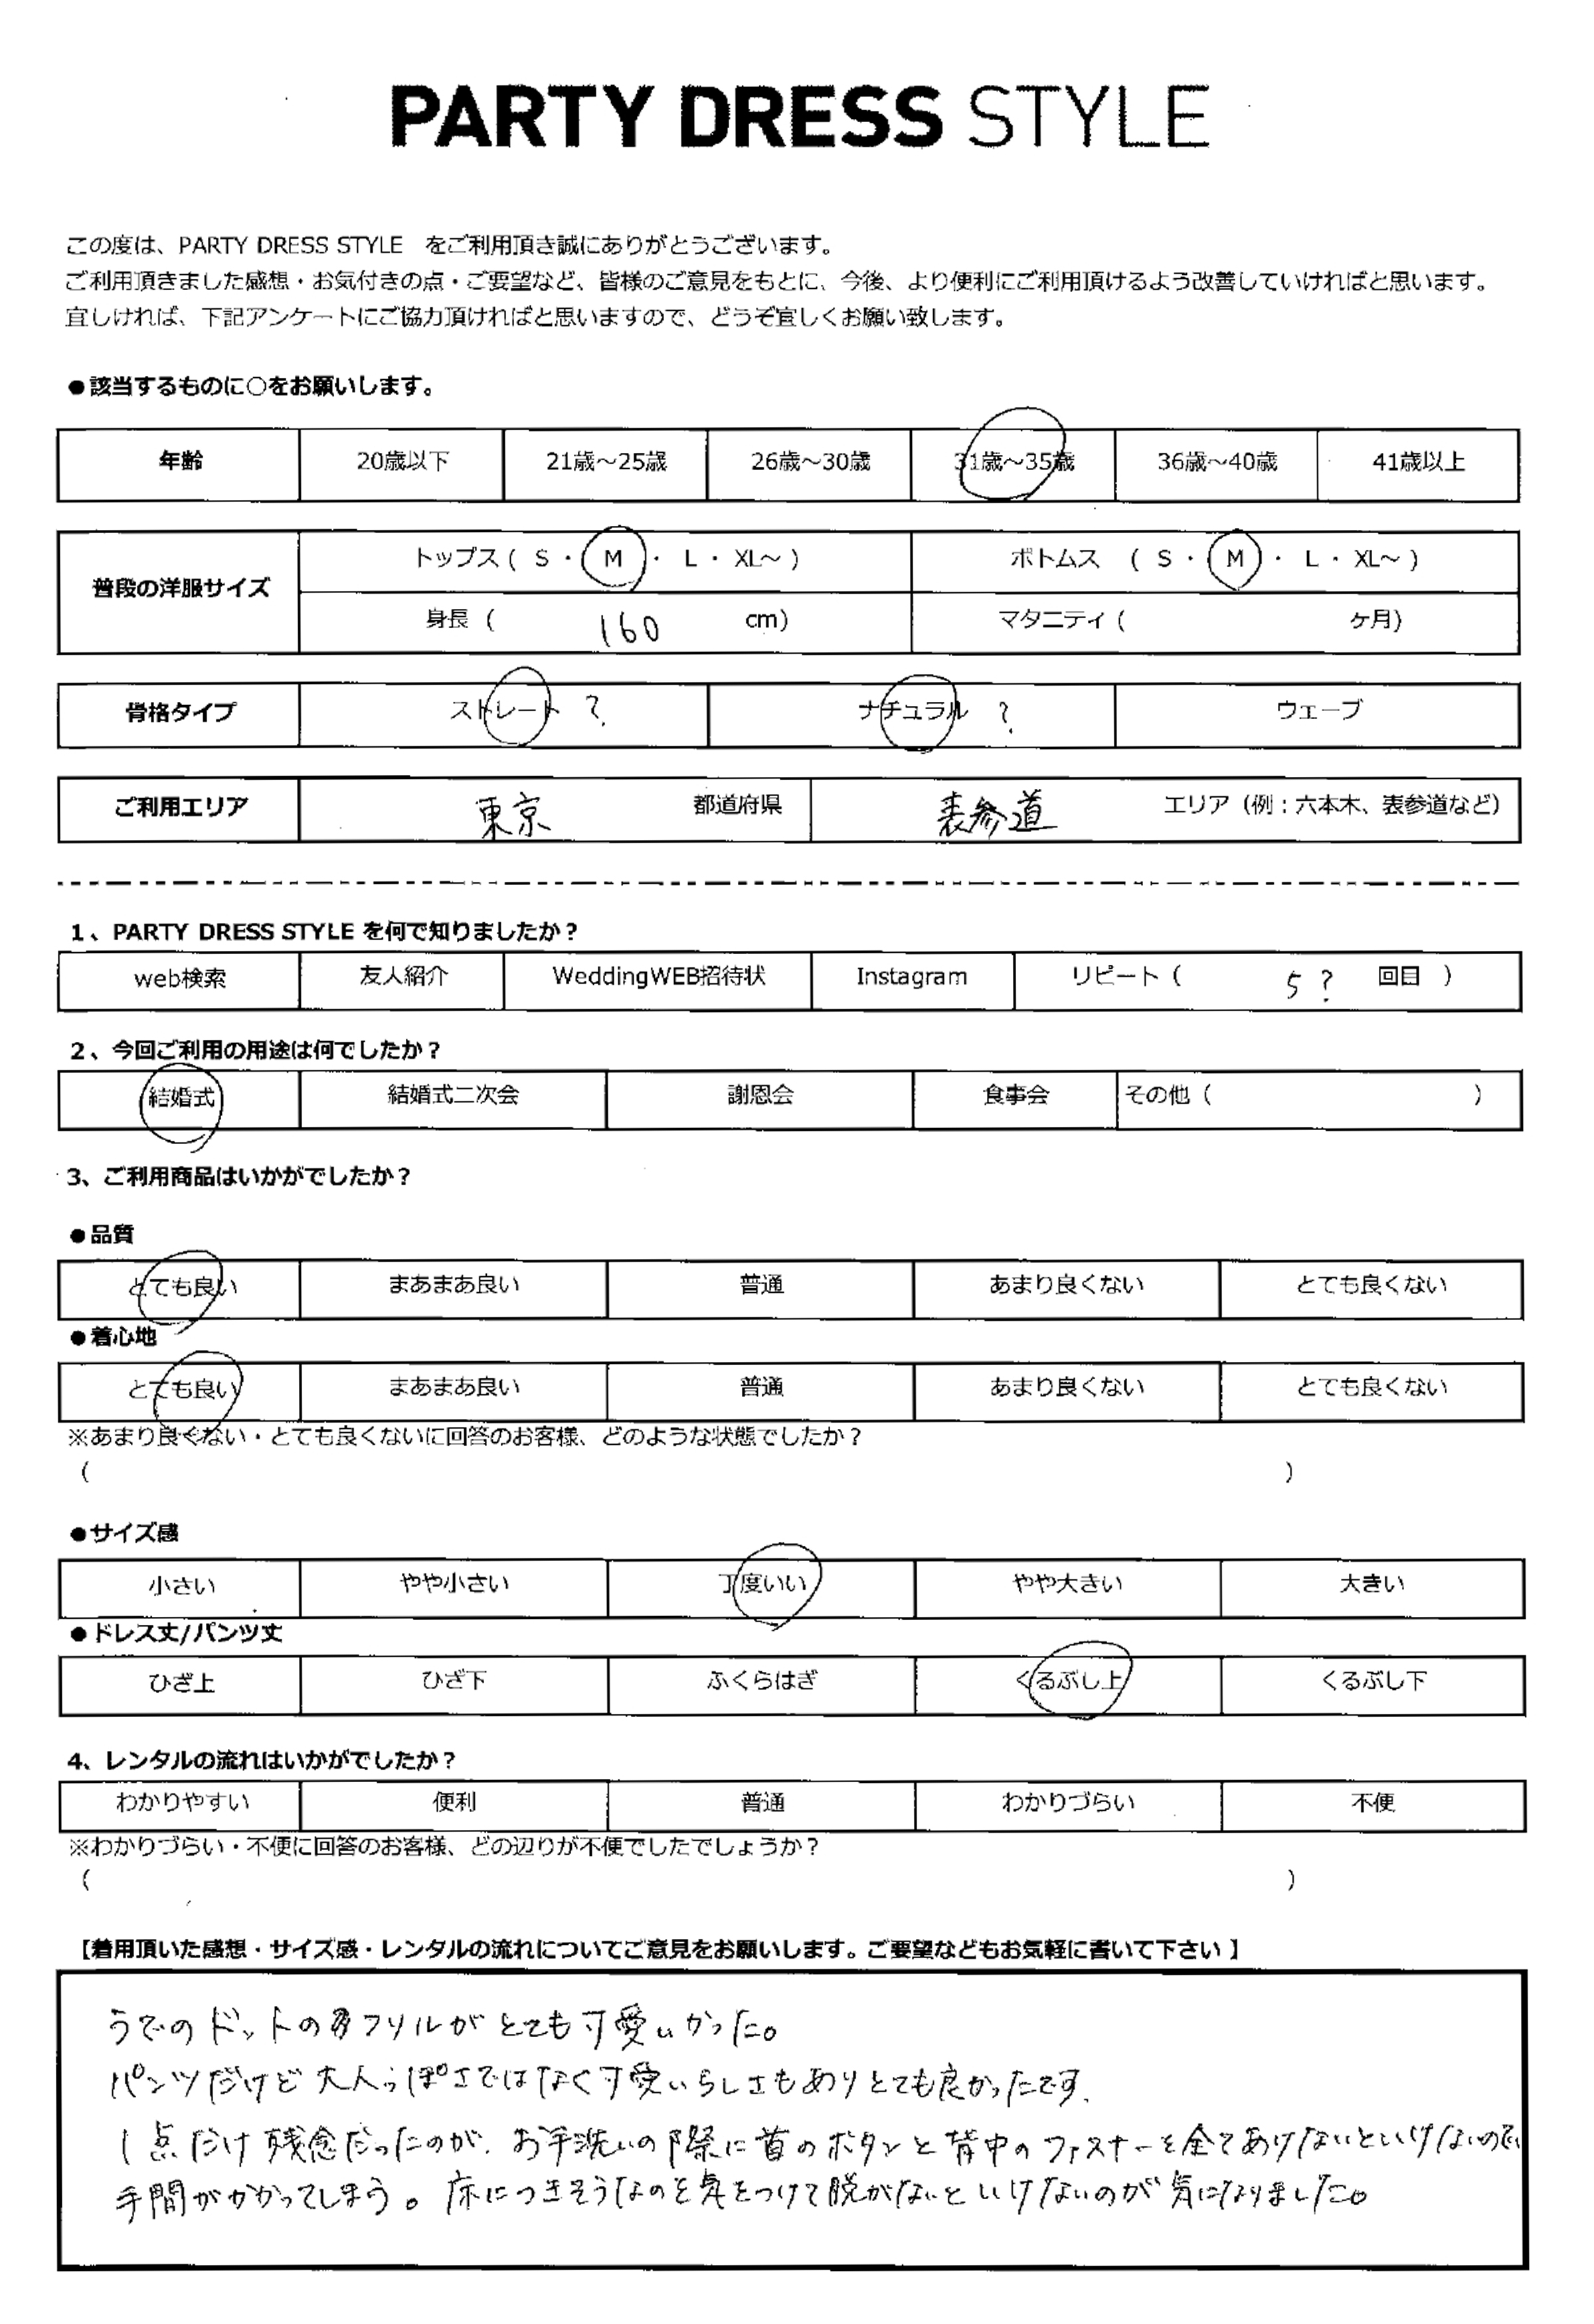 PARTY DRESS STYLE
この度は、PARTY DRESS STYLE をご利用頂き誠にありがとうございます。
ご利用頂きました感想・お気付きの点・ご要望など、皆様のご意見をもとに、今後、より便利にご利用頂けるよう改善していければと思います。
宜しければ、下記アンケートにご協力頂ければと思いますので、どうぞ宜しくお願い致します。
●該当するものに○をお願いします。
年齢 20歳以下 21歳～25歳 26歳～30歳 31歳～35歳 36歳～40歳 41歳以上
普段の洋服サイズ トップス ( S ・ M ・ L ・ XL～ ) ボトムス ( S ・ M ・ L ・ XL～ )
身長 ( 160 cm) マタニティ ( ケ月)
骨格タイプ ストレート ? ナチュラル ? ウェーブ
ご利用エリア 東京 都道府県 表参道 エリア（例：六本木、表参道など）
1、PARTY DRESS STYLE を何で知りましたか？
web検索 友人紹介 WeddingWEB招待状 Instagram リピート ( 5 ? 回目 )
2、今回ご利用の用途は何でしたか？
結婚式 結婚式二次会 謝恩会 食事会 その他 ( )
3、ご利用商品はいかがでしたか？
●品質
とても良い まあまあ良い 普通 あまり良くない とても良くない
●着心地
とても良い まあまあ良い 普通 あまり良くない とても良くない
※あまり良くない・とても良くないに回答のお客様、どのような状態でしたか？
( )
●サイズ感
小さい やや小さい 丁度いい やや大きい 大きい
●ドレス丈/パンツ丈
ひざ上 ひざ下 ふくらはぎ くるぶし上 くるぶし下
4、レンタルの流れはいかがでしたか？
わかりやすい 便利 普通 わかりづらい 不便
※わかりづらい・不便に回答のお客様、どの辺りが不便でしたでしょうか？
( )
【着用頂いた感想・サイズ感・レンタルの流れについてご意見をお願いします。ご要望などもお気軽に書いて下さい】
うでのドットのフリルがとても可愛いかった。
パンツだけど大人っぽさではなく可愛いらしさもありとても良かったです.
1点だけ残念だったのが、お手洗いの際に首のボタンと背中のファスナーを全てあけないといけないので
手間がかかってしまう。床につきそうなのを気をつけて脱がないといけないのが気になりました。